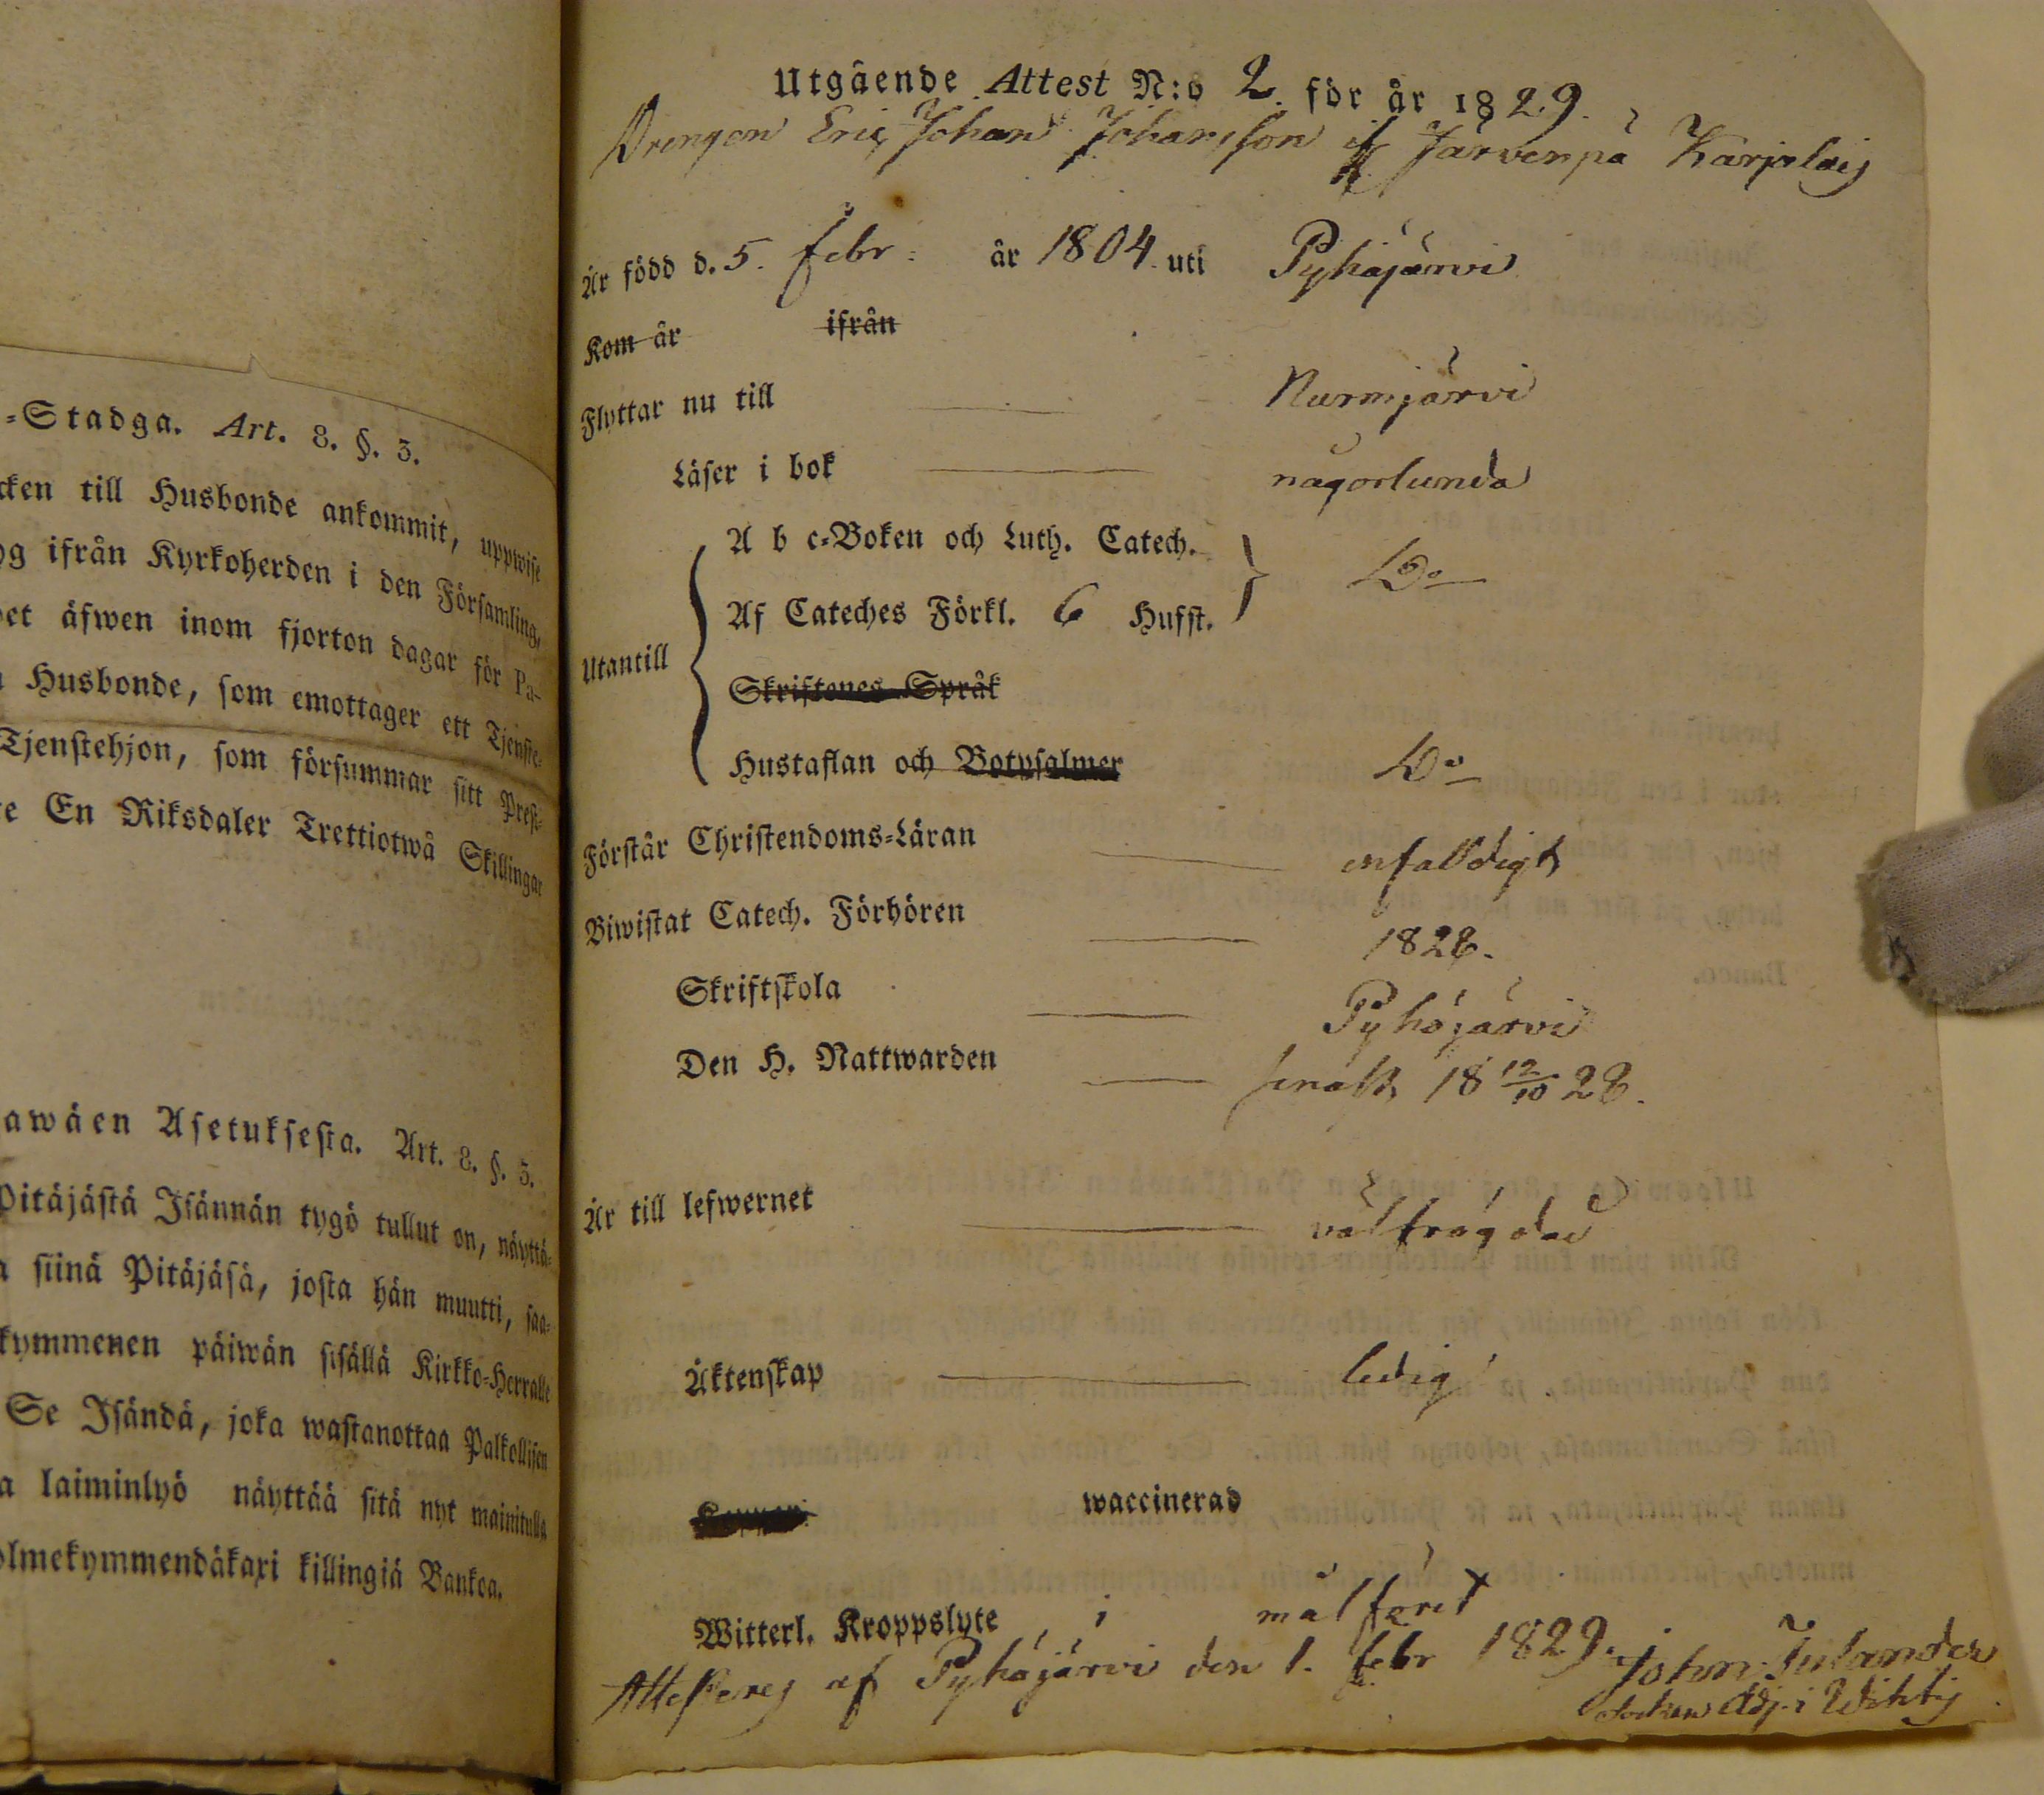 =Stadga. Art. 8. §. 3.
cken till Husbonde ankommit, uppwise
og ifrån Kyrkoherden i den Församling,
et äfwen inom fjorton dagar för Pa-
Husbonde, som emottager ett Tjenste-
Tjenstehjon, som försummar sitt Prest-
e En Riksdaler Trettiotwå Skillingar
awäen Asetuksesta. Art. 8. §. 3.
Pitäjästä Isännän tygö tullut on, näyttä-
siinä Pitäjäsä, josta hän muutti, saa-
kymmenen päiwän sisällä Kirkko-Herralle
Se Isändä, joka wastanottaa Palkollisen
a laiminlyö näyttää sitä nyt mainitulla
olmekymmendäkaxi killingiä Bankoa.
Utgående Attest N:o 2. för år 1829.
Drengen Eric Johan Johansson if Järvenpä Karjelaij
Är född d. 5. febr: år 1804. uti Pyhäjärvi
Kom år ifrån
Flyttar nu till Nurmjärvi
Läser i bok någorlunda
A b c-Boken och Luth. Catech.
Do
Af Cateches Förkl. 6 Hufst.
Utantill
Skriftenes Språk
Hustaflan och Botpsalmer Do
Förstår Christendoms-Läran enfaldigt
Biwistat Catech. Förhören 1828.
Skriftskola Pyhäjärvi
Den H. Nattwarden senast 18 12/10 28.
Är till lefwernet välfrägdad
Äktenskap ledig
waccinerad
Witterl. Kroppslyte i målföret
Attesteras af Pyhäjärvi den 1. febr 1829. John Julander
Socken Adj. i Wihtij